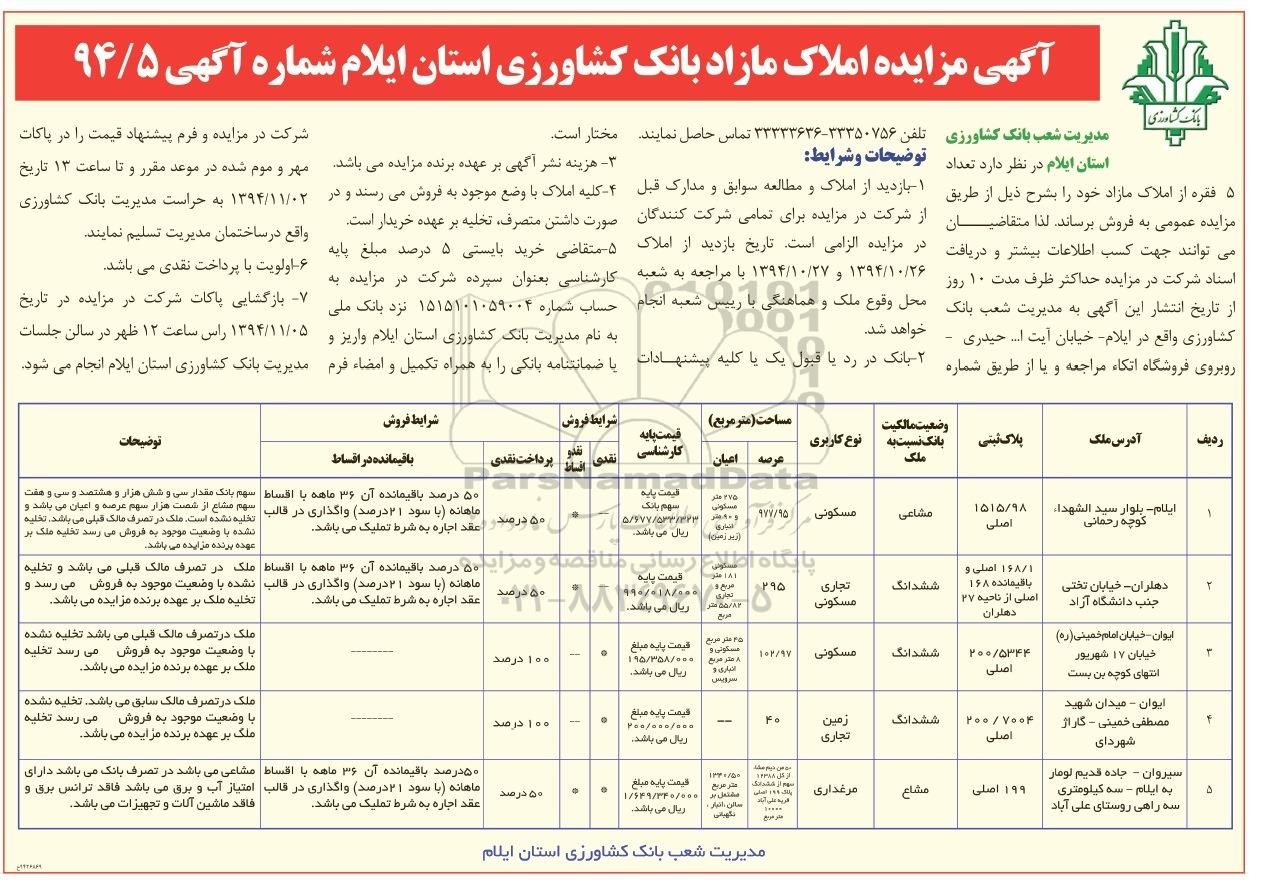 آگهی مزایده املاک مازاد بانک کشاورزی استان ایلام شماره آگهی ۹۴/۵
بانک کشاورزی
مدیریت شعب بانک کشاورزی
استان ایلام در نظر دارد تعداد
۵ فقره از املاک مازاد خود را بشرح ذیل از طریق
مزایده عمومی به فروش برساند. لذا متقاضیـــــان
می توانند جهت کسب اطلاعات بیشتر و دریافت
اسناد شرکت در مزایده حداکثر ظرف مدت ۱۰ روز
از تاریخ انتشار این آگهی به مدیریت شعب بانک
کشاورزی واقع در ایلام- خیابان آیت ا... حیدری -
روبروی فروشگاه اتکاء مراجعه و یا از طریق شماره
تلفن ۳۳۳۵۰۷۵۶-۳۳۳۳۳۶۳۶ تماس حاصل نمایند.
توضیحات وشرایط:
۱-بازدید از املاک و مطالعه سوابق و مدارک قبل
از شرکت در مزایده برای تمامی شرکت کنندگان
در مزایده الزامی است. تاریخ بازدید از املاک
۱۳۹۴/۱۰/۲۶ و ۱۳۹۴/۱۰/۲۷ با مراجعه به شعبه
محل وقوع ملک و هماهنگی با رییس شعبه انجام
خواهد شد.
۲-بانک در رد یا قبول یک یا کلیه پیشنهـــادات
مختار است.
۳- هزینه نشر آگهی بر عهده برنده مزایده می باشد.
۴-کلیه املاک با وضع موجود به فروش می رسند و در
صورت داشتن متصرف، تخلیه بر عهده خریدار است.
۵-متقاضی خرید بایستی ۵ درصد مبلغ پایه
کارشناسی بعنوان سپرده شرکت در مزایده به
حساب شماره ۱۵۱۵۱۰۱۰۵۹۰۰۴ نزد بانک ملی
به نام مدیریت بانک کشاورزی استان ایلام واریز و
یا ضمانتنامه بانکی را به همراه تکمیل و امضاء فرم
شرکت در مزایده و فرم پیشنهاد قیمت را در پاکات
مهر و موم شده در موعد مقرر و تا ساعت ۱۳ تاریخ
۱۳۹۴/۱۱/۰۲ به حراست مدیریت بانک کشاورزی
واقع درساختمان مدیریت تسلیم نمایند.
۶-اولویت با پرداخت نقدی می باشد.
۷- بازگشایی پاکات شرکت در مزایده در تاریخ
۱۳۹۴/۱۱/۰۵ راس ساعت ۱۲ ظهر در سالن جلسات
مدیریت بانک کشاورزی استان ایلام انجام می شود.
ردیف آدرس ملک پلاک ثبتی وضعیت مالکیت بانک نسبت به ملک نوع کاربری مساحت(متر مربع) عرصه اعیان قیمت پایه کارشناسی شرایط فروش نقدی نقد و اقساط شرایط فروش پرداخت نقدی باقیمانده در اقساط توضیحات
۱ ایلام- بلوار سید الشهداء کوچه رحمانی ۱۵۱۵/۹۸ اصلی مشاعی مسکونی ۹۷۷/۹۵ ۲۷۵ متر مسکونی و ۹۰ متر انباری (زیر زمین) قیمت پایه سهم بانک ۵/۶۷۷/۵۳۳/۳۲۳ ریال می باشد. — * ۵۰ درصد ۵۰ درصد باقیمانده آن ۳۶ ماهه با اقساط ماهانه (با سود ۲۱درصد) واگذاری در قالب عقد اجاره به شرط تملیک می باشد.
سهم بانک مقدار سی و شش هزار و هشتصد و سی و هفت
سهم مشاع از شصت هزار سهم عرصه و اعیان می باشد و
تخلیه نشده است. ملک در تصرف مالک قبلی می باشد. تخلیه
نشده با وضعیت موجود به فروش می رسد تخلیه ملک بر
عهده برنده مزایده می باشد.
۲ دهلران- خیابان تختی جنب دانشگاه آزاد ۱۶۸/۱ اصلی و باقیمانده ۱۶۸ اصلی از ناحیه ۲۷ دهلران ششدانگ تجاری مسکونی ۲۹۵ مسکونی ۱۸۱ متر مربع و تجاری ۵۵/۸۲ متر مربع قیمت پایه ۹۹۰/۰۱۸/۰۰۰ ریال می باشد. — * ۵۰ درصد ۵۰ درصد باقیمانده آن ۳۶ ماهه با اقساط ماهانه (با سود ۲۱درصد) واگذاری در قالب عقد اجاره به شرط تملیک می باشد.
ملک در تصرف مالک قبلی می باشد و تخلیه
نشده با وضعیت موجود به فروش می رسد و
تخلیه ملک بر عهده برنده مزایده می باشد.
۳ ایوان-خیابان امام خمینی(ره) خیابان ۱۷ شهریور انتهای کوچه بن بست ۲۰۰/۵۳۴۴ اصلی ششدانگ مسکونی ۱۰۲/۹۷ ۴۵ متر مربع مسکونی و ۸ متر مربع انباری و سرویس قیمت پایه مبلغ ۱۹۵/۳۵۸/۰۰۰ ریال می باشد. * -- ۱۰۰ درصد --------
ملک درتصرف مالک قبلی می باشد تخلیه نشده
با وضعیت موجود به فروش می رسد تخلیه
ملک بر عهده برنده مزایده می باشد.
۴ ایوان - میدان شهید مصطفی خمینی - گاراژ شهردای ۲۰۰ / ۷۰۰۴ اصلی ششدانگ زمین تجاری ۴۰ -- قیمت پایه مبلغ ۲۰۰/۰۰۰/۰۰۰ ریال می باشد. * -- ۱۰۰ درصد --------
ملک درتصرف مالک سابق می باشد. تخلیه نشده
با وضعیت موجود به فروش می رسد تخلیه
ملک بر عهده برنده مزایده می باشد.
۵ سیروان - جاده قدیم لومار به ایلام - سه کیلومتری سه راهی روستای علی آباد ۱۹۹ اصلی مشاع مرغداری ۵۰ من دیم مشاع از کل ۱۲۳۸۸ سهم از ششدانگ پلاک ۱۹۹ اصلی قریه علی آباد ۱۰۰۰۰ متر مربع ۱۳۴۰/۵۰ متر مربع مشتمل بر سالن ،انبار ، نگهبانی قیمت پایه مبلغ ۱/۶۴۹/۳۴۰/۰۰۰ ریال می باشد. * * ۵۰ درصد ۵۰درصد باقیمانده آن ۳۶ ماهه با اقساط ماهانه (با سود ۲۱درصد) واگذاری در قالب عقد اجاره به شرط تملیک می باشد.
مشاعی می باشد در تصرف بانک می باشد دارای
امتیاز آب و برق می باشد فاقد ترانس برق و
فاقد ماشین آلات و تجهیزات می باشد.
مدیریت شعب بانک کشاورزی استان ایلام
ParsNamadData
پایگاه اطلاع رسانی مناقصه و مزایده